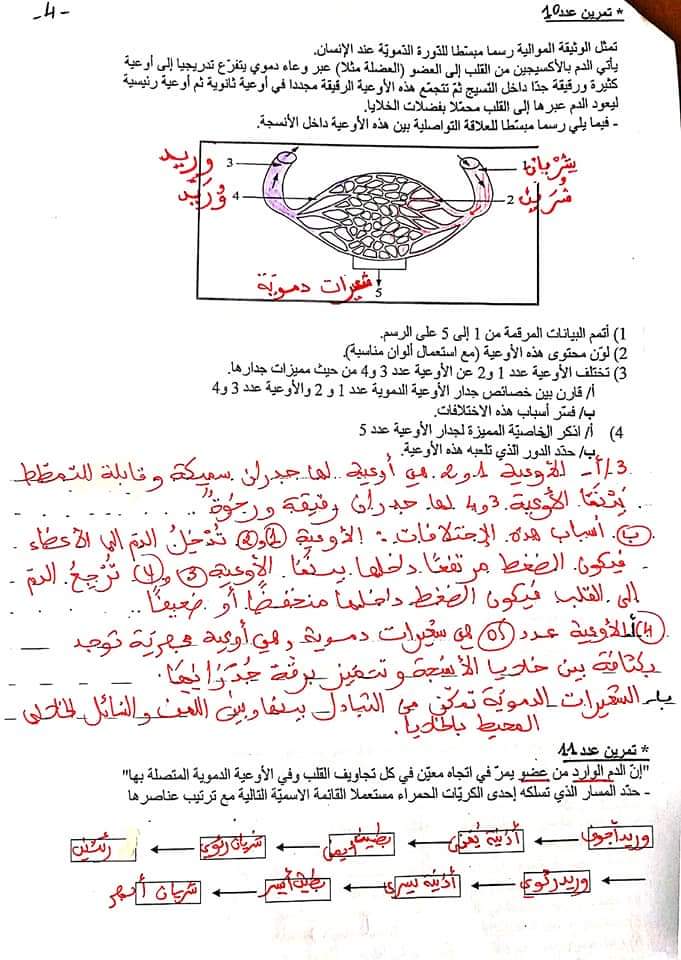 -4-
* تمرين عدد 10
تمثل الوثيقة الموالية رسما مبسّطا للدّورة الدّمويّة عند الإنسان.
يأتي الدم بالأكسيجين من القلب إلى العضو (العضلة مثلا) عبر وعاء دموي يتفرّع تدريجيا إلى أوعية
كثيرة ورقيقة جدّا داخل النسيج ثمّ تتجمّع هذه الأوعية الرقيقة مجددا في أوعية ثانوية ثم أوعية رئيسية
ليعود الدم عبرها إلى القلب محمّلا بفضلات الخلايا.
- فيما يلي رسما مبسّطا للعلاقة التواصلية بين هذه الأوعية داخل الأنسجة.
شريان 1
3 وريد
شريين 2
4 وُرَيِّد
5
شعيرات دمويّة
1) أتمم البيانات المرقمة من 1 إلى 5 على الرسم.
2) لوّن محتوى هذه الأوعية (مع استعمال ألوان مناسبة).
3) تختلف الأوعية عدد 1 و2 عن الأوعية عدد 3 و4 من حيث مميزات جدارها.
أ/ قارن بين خصائص جدار الأوعية الدموية عدد 1 و 2 والأوعية عدد 3 و4
ب/ فسّر أسباب هذه الاختلافات.
4) أ/ اذكر الخاصيّة المميزة لجدار الأوعية عدد 5
ب/ حدّد الدور الذي تلعبه هذه الأوعية.
3/أ- الأوعية 1 و2 هي أوعية لها جدران سميكة وقابلة للتمطّط
بينما الأوعية 3 و4 لها جدران رقيقة ورخوة
ب. أسباب هذه الإختلافات: الأوعية 1 و2 تُدْخِلُ الدمّ إلى الأعضاء
فيكون الضغط مرتفعًا داخلها بينما الأوعية 3 و4 تُرْجِعُ الدمّ
إلى القلب فيكون الضغط داخلها منخفضًا أو ضعيفًا
4 أ الأوعية عدد 05 هي شعيرات دموية وهي أوعية مجهريّة توجد
بكثافة بين خلايا الأنسجة وتتميز برقة جُدْرَانِهَا.
ب- الشعيرات الدمويّة تمكّن من التبادل بينها وبين اللمف والسّائل الخلالي
المحيط بالخلايا.
* تمرين عدد 11
"إنّ الدم الوارد من عضو يمرّ في اتجاه معيّن في كل تجاويف القلب وفي الأوعية الدموية المتصلة بها"
- حدّد المسار الذي تسلكه إحدى الكريّات الحمراء مستعملا القائمة الاسميّة التالية مع ترتيب عناصرها
وريد أجوف أذينة يمنى بطين أيمن شريان رئوي رئتين
وريد رئوي أذينة يسرى بطين أيسر شريان أبهر